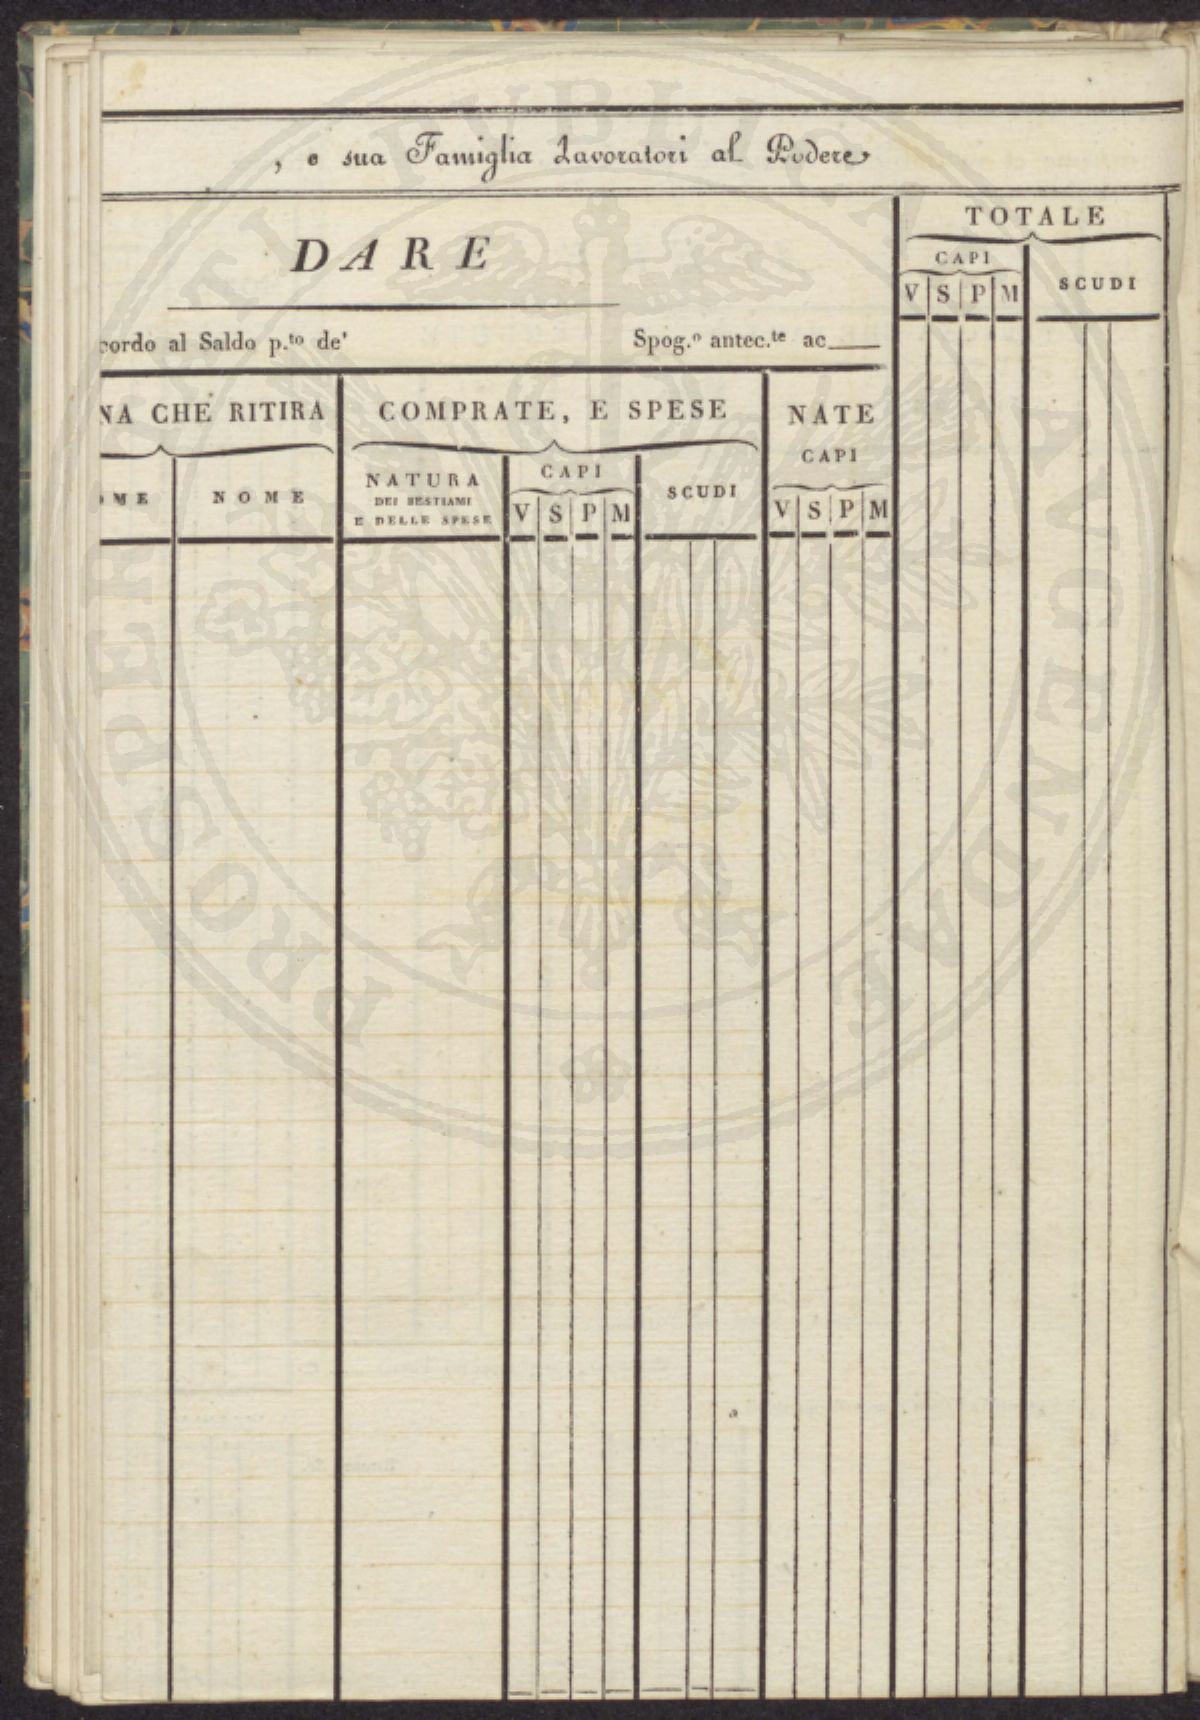 , e sua Famiglia Lavoratori al Podere
DARE
cordo al Saldo p.to de' Spog.o antec.te ac
TOTALE
CAPI SCUDI
V S P M
NA CHE RITIRA COMPRATE, E SPESE NATE
OME NOME NATURA DEI BESTIAMI E DELLE SPESE CAPI SCUDI CAPI
V S P M V S P M
PROSPERITATI PUBLICAE AVGENDAE